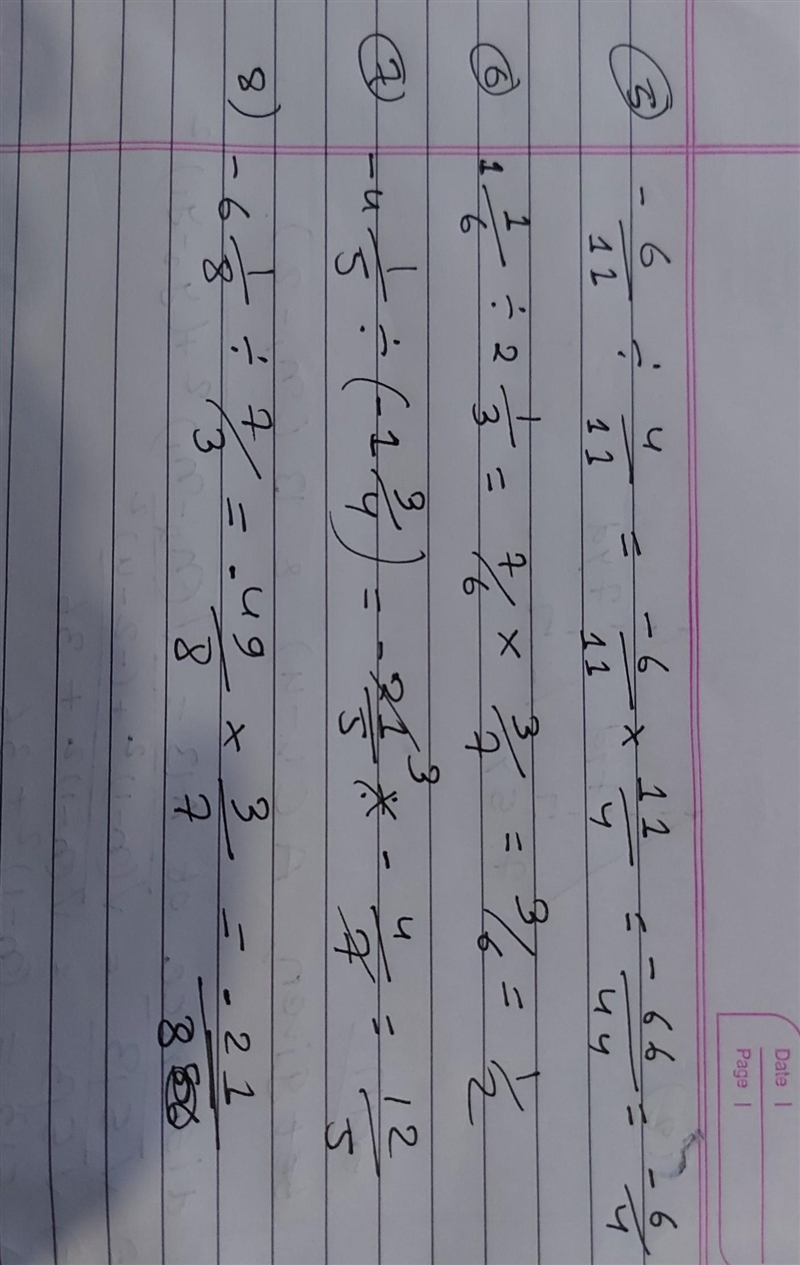 Date |
Page |
5) -6/11 ÷ 4/11 = -6/11 × 11/4 = -66/44 = -6/4
6) 1 1/6 ÷ 2 1/3 = 7/6 × 3/7 = 3/6 = 1/2
7) -4 1/5 ÷ (-1 3/4) = -21/5 3 × -4/7 = 12/5
8) -6 1/8 ÷ 7/3 = -49/8 × 3/7 = -21/8